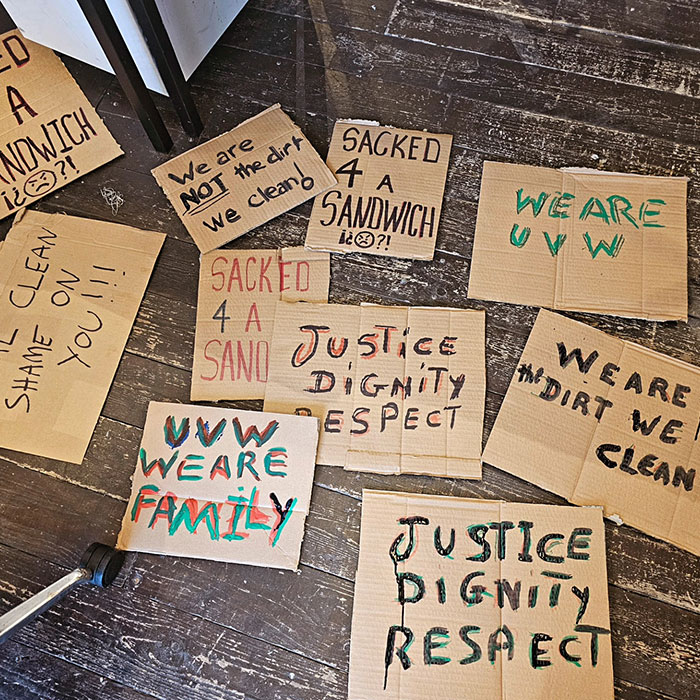 ED
A
ANDWICH
¡¿☹?!
We are
NOT the dirt
we clean!
SACKED
4 A
SANDWICH
¡¿☹?!
WE ARE
UVW
CLEAN
SHAME ON
YOU!!!
SACKED
4 A
SAND
JUSTICE
DIGNITY
RESPECT
WE ARE
THE DIRT WE
CLEAN
UVW
WE ARE
FAMILY
JUSTICE
DIGNITY
RESAECT